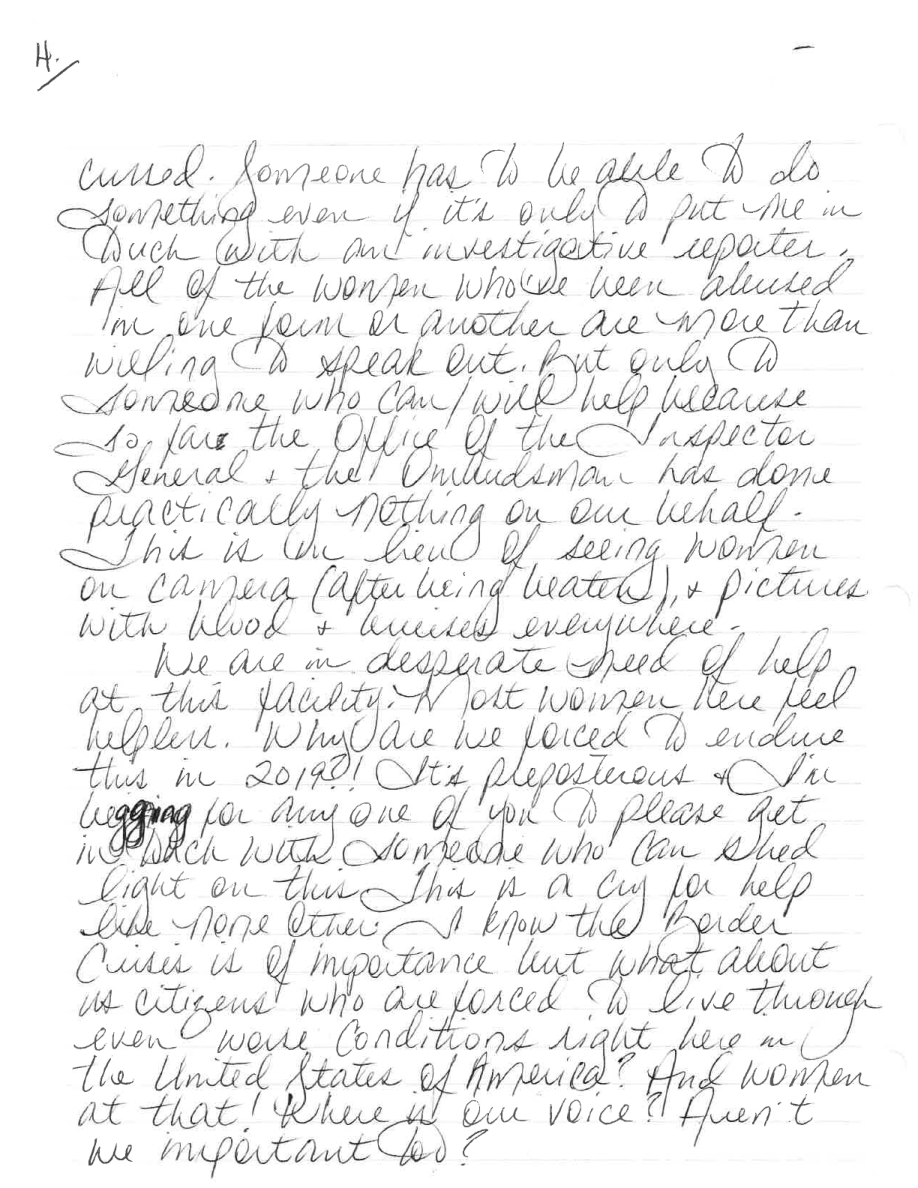 4.
cussed. Someone has to be able to do
something even if it's only to put me in
touch with an investigative reporter.
All of the women who've been abused
in one form or another are more than
willing to speak out. But only to
someone who can/will help because
so far the Office of the Inspector
General & the Ombudsman has done
practically nothing on our behalf.
This is in lieu of seeing women
on camera (after being beaten), & pictures
with blood & bruises everywhere.
We are in desperate need of help
at this facility. Most women here feel
helpless. Why are we forced to endure
this in 2019?! It's preposterous & I'm
begging for any one of you to please get
in touch with someone who can shed
light on this. This is a cry for help
like none other. I know the Border
Crisis is of importance but what about
us citizens who are forced to live through
even worse conditions right here in
the United States of America? And women
at that! Where is our voice? Aren't
we important too?